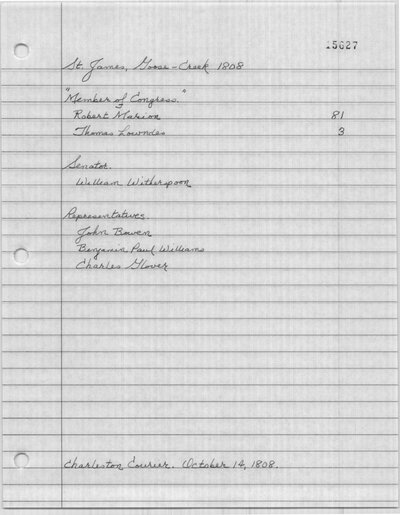 15627
St. James, Goose-Creek 1808
"Member of Congress."
Robert Marion 81
Thomas Lowndes 3
Senator.
William Witherspoon
Representatives
John Bowen
Benjamin Paul Williams
Charles Glover
Charleston Courier. October 14, 1808.